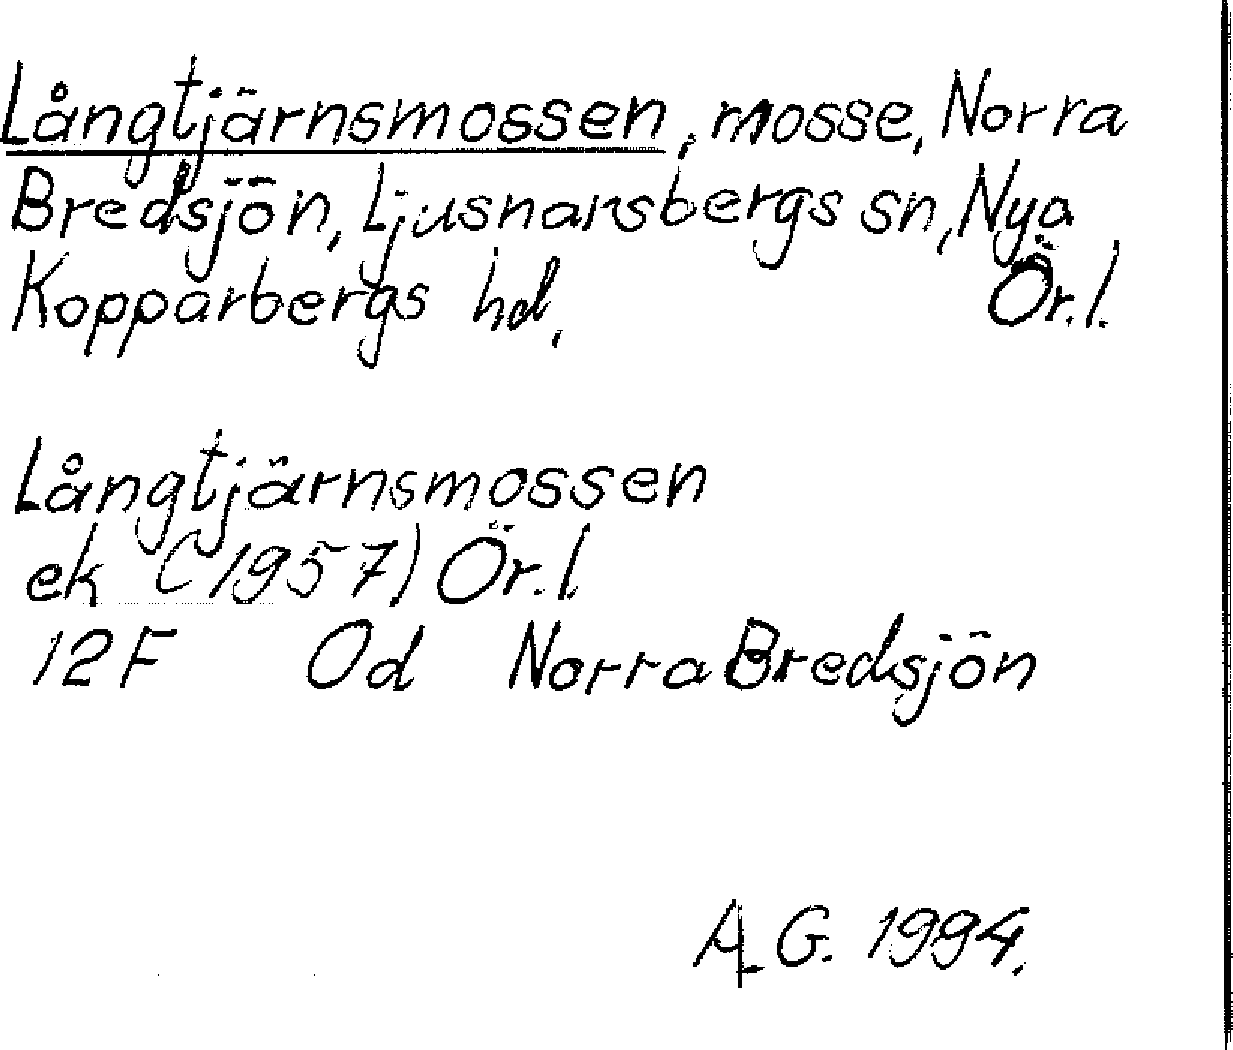 Långtjärnsmossen, mosse, Norra
Bredsjön, Ljusnarsbergs sn, Nya
Kopparbergs hd. Ör.l.
Långtjärnsmossen
ek (1957) Ör.l
12F Od Norra Bredsjön
A.G. 1994.